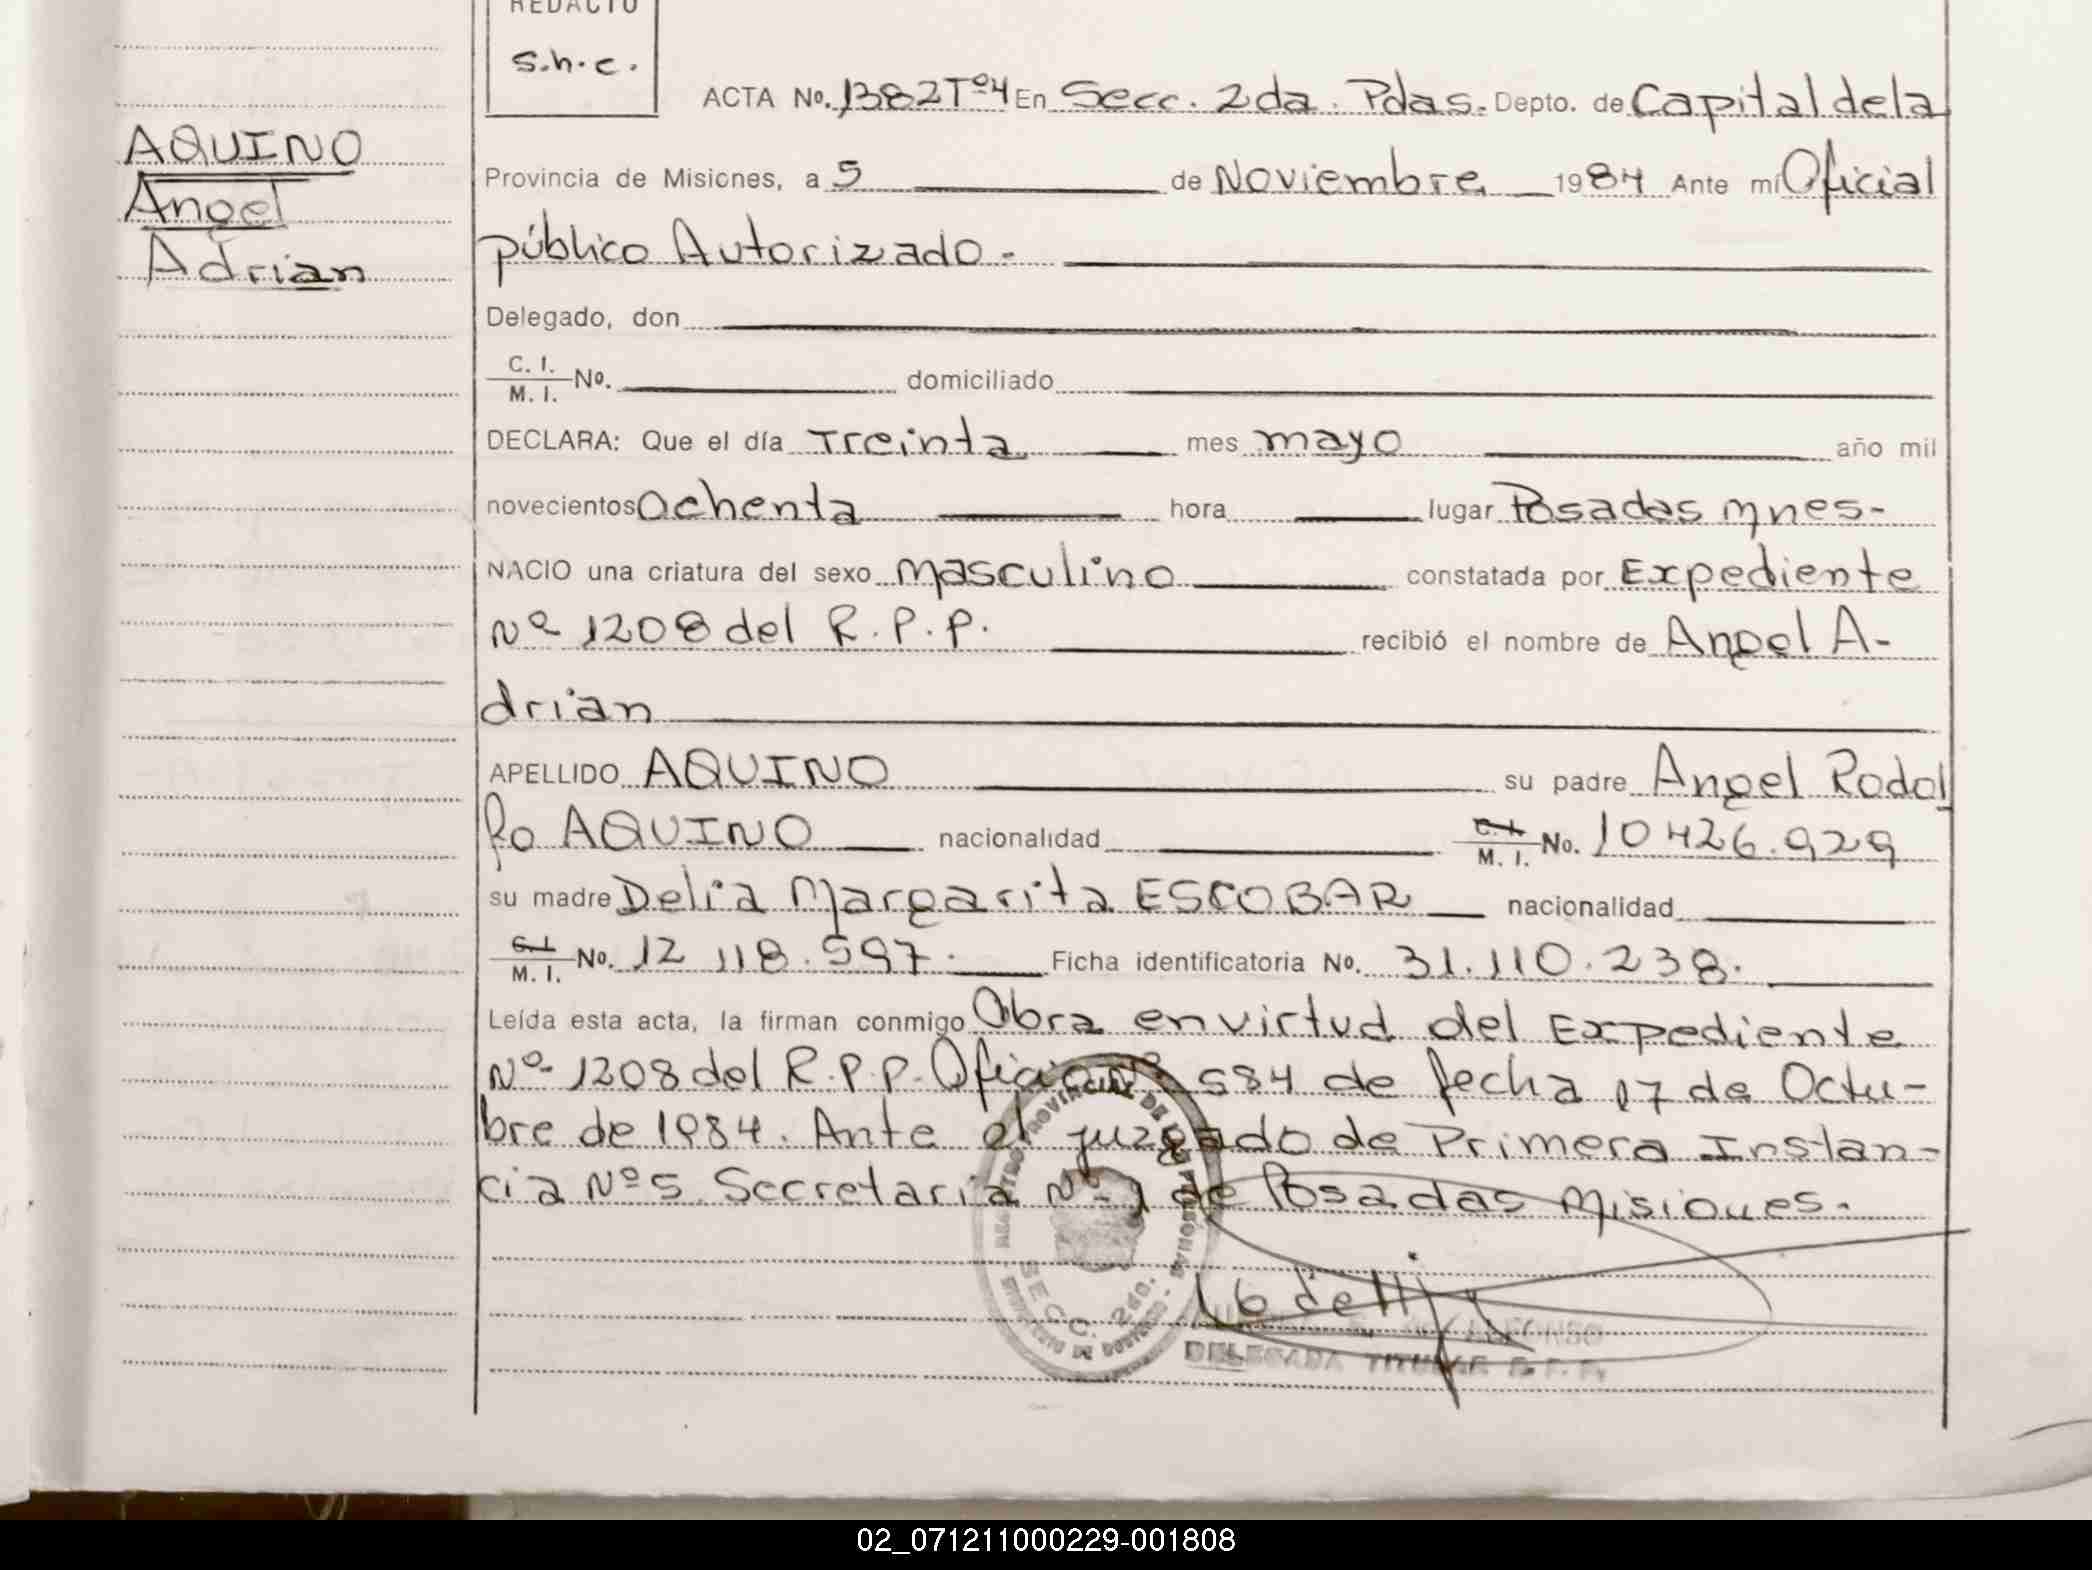 REDACTO
S.h.c.
ACTA No. 1382 Tº4 En Secc. 2da. Pdas. Depto. de Capital de la
AQUINO
Angel
Adrian
Provincia de Misiones, a 5 de Noviembre 1984 Ante mí Oficial
público Autorizado.-
Delegado, don
C. I.
M. I. No. domiciliado
DECLARA: Que el día Treinta mes mayo año mil
novecientos Ochenta hora lugar Posadas Mnes-
NACIO una criatura del sexo masculino constatada por Expediente
Nº 1208 del R.P.P. recibió el nombre de Angel A-
drian
APELLIDO AQUINO su padre Angel Rodol
fo AQUINO nacionalidad C. I. M. I. No. 10 426.929
su madre Delia Margarita ESCOBAR nacionalidad
C. I. M. I. No. 12 118.597. Ficha identificatoria No. 31.110.238.
Leída esta acta, la firman conmigo Obra en virtud del Expediente
Nº 1208 del R.P.P. Oficio Nº 584 de fecha 17 de Octu-
bre de 1984. Ante el juzgado de Primera Instan-
cia Nº5 Secretaria Nº 1 de Posadas Misiones.
SECC. 2da.
ALFONSO
DELEGADA TITULAR R.P.P.
02_071211000229-001808